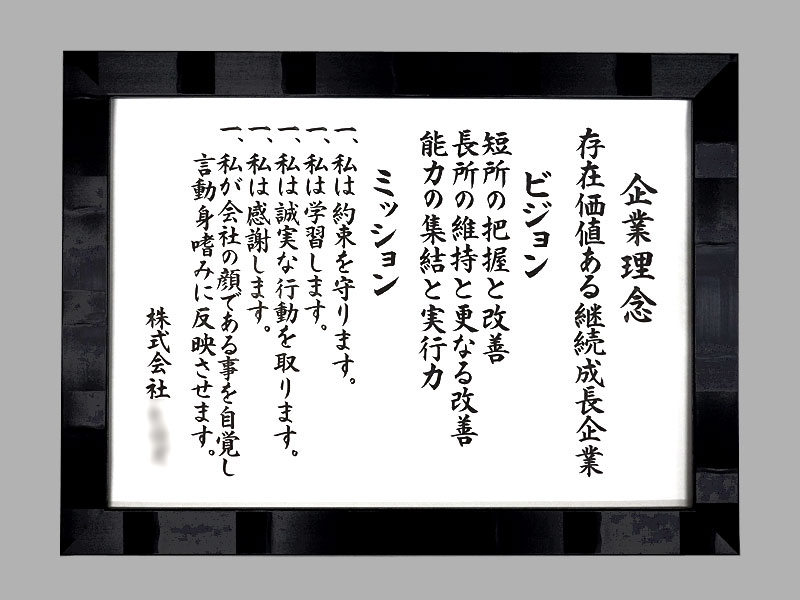 企業理念
存在価値ある継続成長企業
ビジョン
短所の把握と改善
長所の維持と更なる改善
能力の集結と実行力
ミッション
一、私は約束を守ります。
一、私は学習します。
一、私は誠実な行動を取ります。
一、私は感謝します。
一、私が会社の顔である事を自覚し
言動身嗜みに反映させます。
株式会社